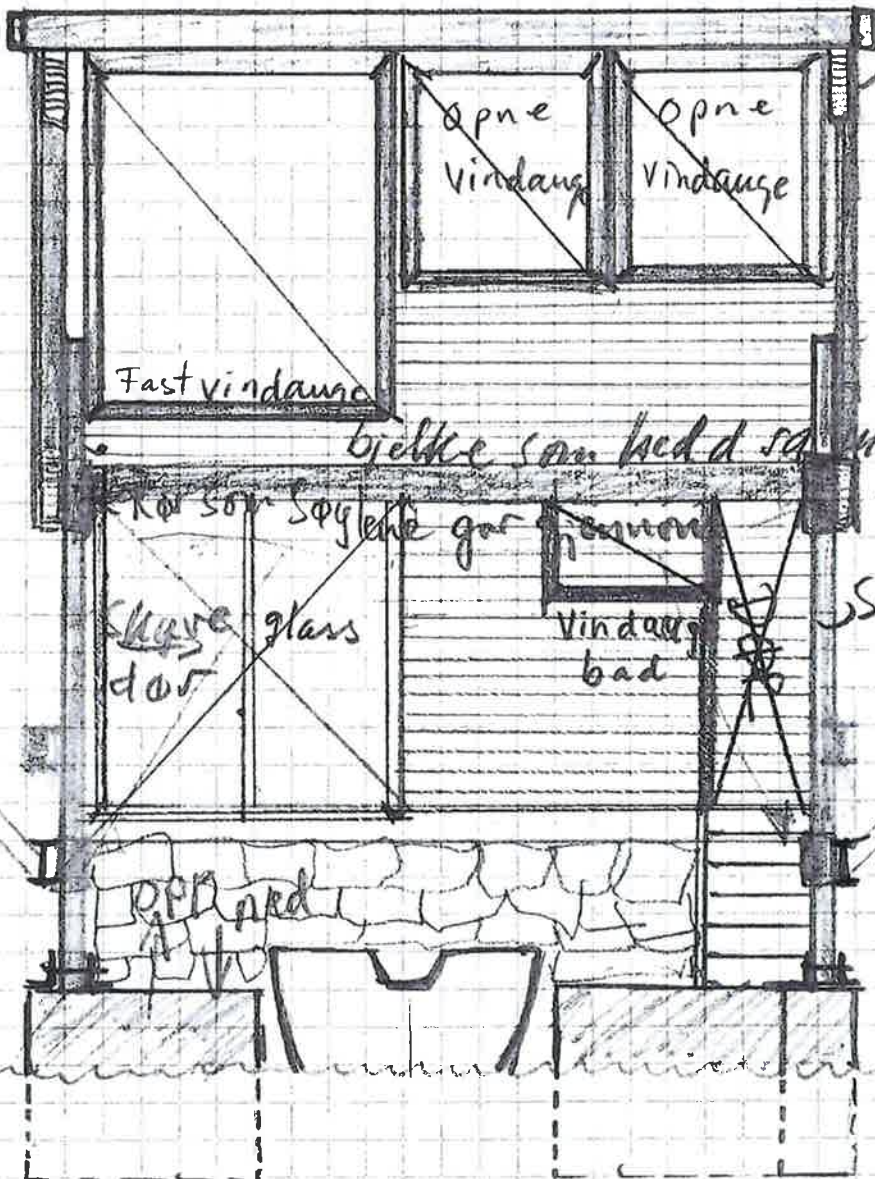 Opne
Vindauge
Opne
Vindauge
Fast vindauge
bjelke som
som søylene går gjennom
Skyve
dør
glass
Vindaug
bad
Dør
OPP
ned